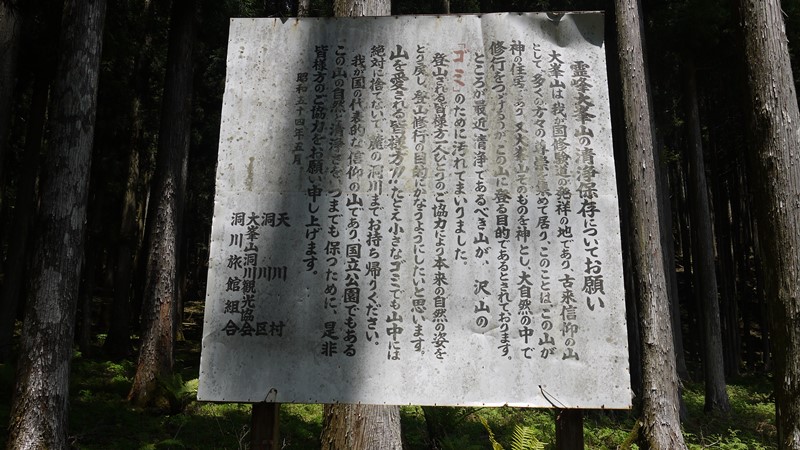 霊峰大峯山の清浄保存についてお願い
大峯山は、我が国修験道の発祥の地であり、古来信仰の山
として、多くの方々の尊崇を集めて居り、このことは、この山が
神の住居であり、又大峯山そのものを神とし、大自然の中で
修行をつづけるのが、この山に登る目的であるとされております。
ところが最近、清浄であるべき山が、沢山の
「ゴミ」のために汚れてまいりました。
登山される皆様方一人ひとりのご協力により本来の自然の姿を
とり戻し、登山修行の目的にかなうようにしたいと思います。
山を愛される皆様方!!たとえ小さなゴミでも山中には
絶対に捨てないで、麓の洞川までお持ち帰りください。
我が国の代表的な信仰の山であり、国立公園でもある
この山の自然と清浄さを、いつまでも保つために、是非
皆様方のご協力をお願い申し上げます。
昭和五十四年五月
天川村
洞川区
大峯山洞川観光協会
洞川旅館組合